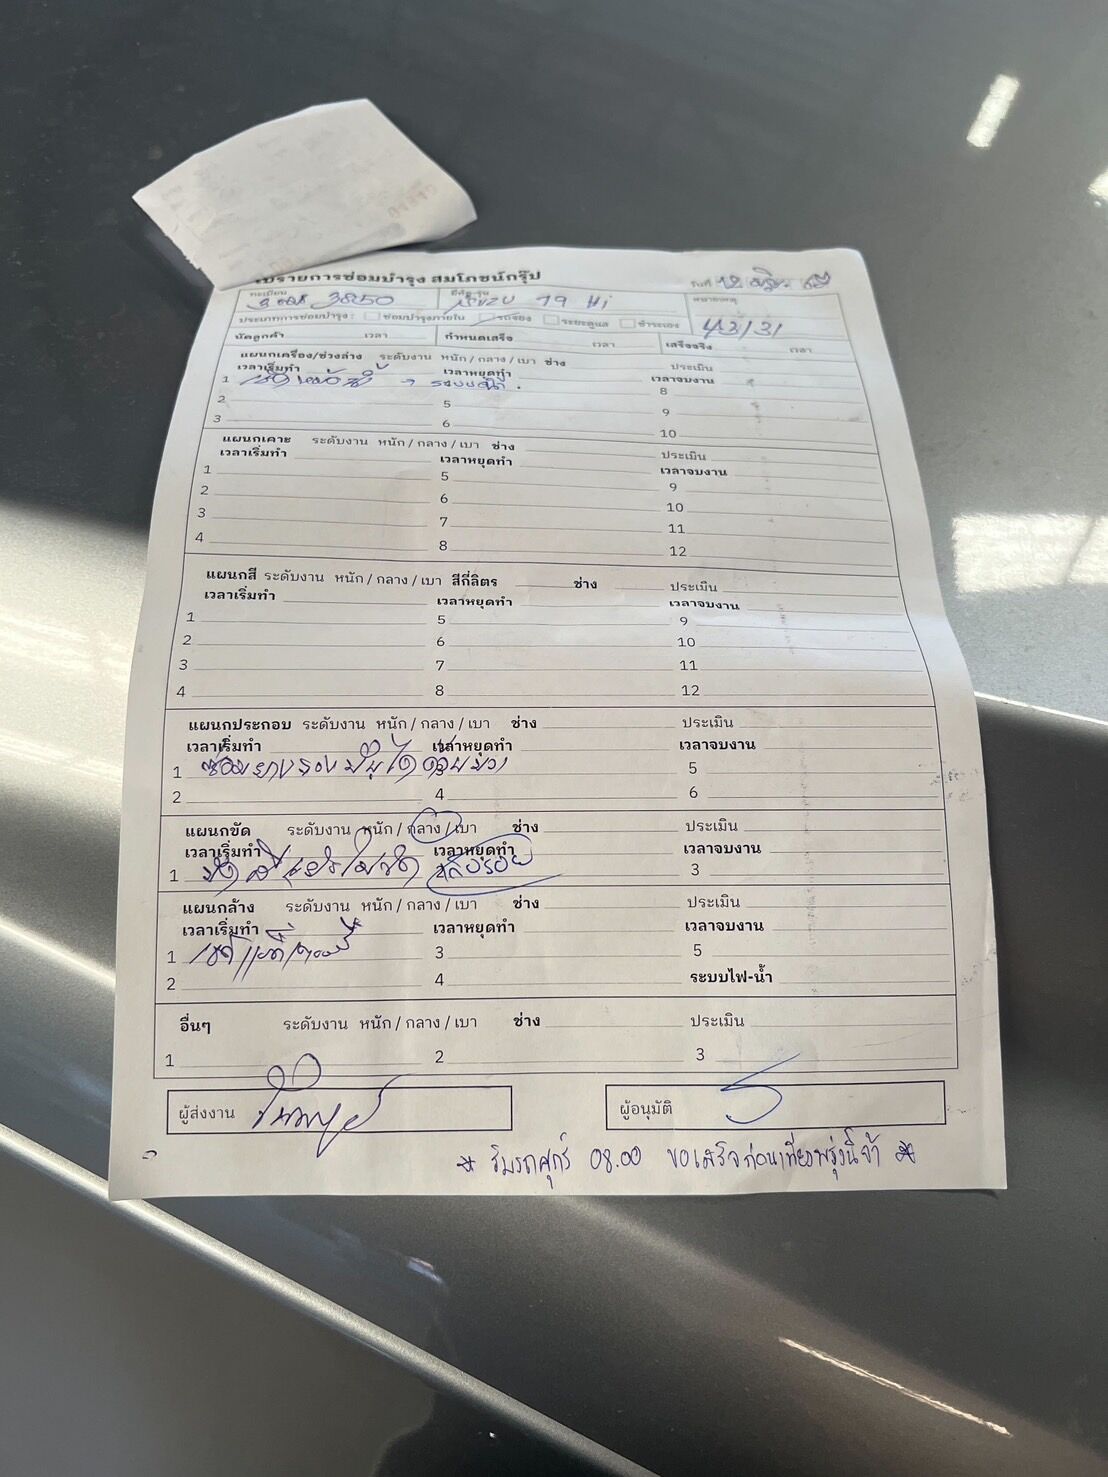 ใบรายการซ่อมบำรุง สมโภชน์กรุ๊ป วันที่ 12
ทะเบียน 3850 ยี่ห้อ-รุ่น ISUZU 19 Hi หมายเหตุ
ประเภทการซ่อมบำรุง : ซ่อมบำรุงภายใน รถจอง ระยะดูแล ชำระเอง 43/31
นัดลูกค้า เวลา กำหนดเสร็จ เวลา เสร็จจริง เวลา
แผนกเครื่อง/ช่วงล่าง ระดับงาน หนัก / กลาง / เบา ช่าง ประเมิน
เวลาเริ่มทำ เวลาหยุดทำ เวลาจบงาน
1 8
2 5 9
3 6 10
แผนกเคาะ ระดับงาน หนัก / กลาง / เบา ช่าง ประเมิน
เวลาเริ่มทำ เวลาหยุดทำ เวลาจบงาน
1 5 9
2 6 10
3 7 11
4 8 12
แผนกสี ระดับงาน หนัก / กลาง / เบา สีกี่ลิตร ช่าง ประเมิน
เวลาเริ่มทำ เวลาหยุดทำ เวลาจบงาน
1 5 9
2 6 10
3 7 11
4 8 12
แผนกประกอบ ระดับงาน หนัก / กลาง / เบา ช่าง ประเมิน
เวลาเริ่มทำ เวลาหยุดทำ เวลาจบงาน
1 3 5
2 4 6
แผนกขัด ระดับงาน หนัก / กลาง / เบา ช่าง ประเมิน
เวลาเริ่มทำ เวลาหยุดทำ เวลาจบงาน
1 ลบรอย 3
แผนกล้าง ระดับงาน หนัก / กลาง / เบา ช่าง ประเมิน
เวลาเริ่มทำ เวลาหยุดทำ เวลาจบงาน
1 3 5
2 4 ระบบไฟ-น้ำ
อื่นๆ ระดับงาน หนัก / กลาง / เบา ช่าง ประเมิน
1 2 3
ผู้ส่งงาน ผู้อนุมัติ
รับรถศุกร์ 08.00 ขอเสร็จก่อนเที่ยงพรุ่งนี้จ้า